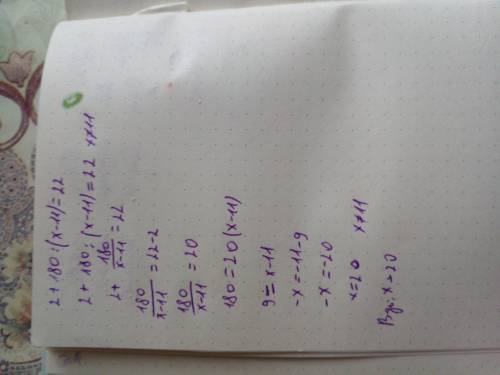 2+180:(x-11)=22
2+180:(x-11)=22 x≠11
2+180/x-11=22
180/x-11=22-2
180/x-11=20
180=20(x-11)
9=x-11
-x=-11-9
-x=-20
x=20 x≠11